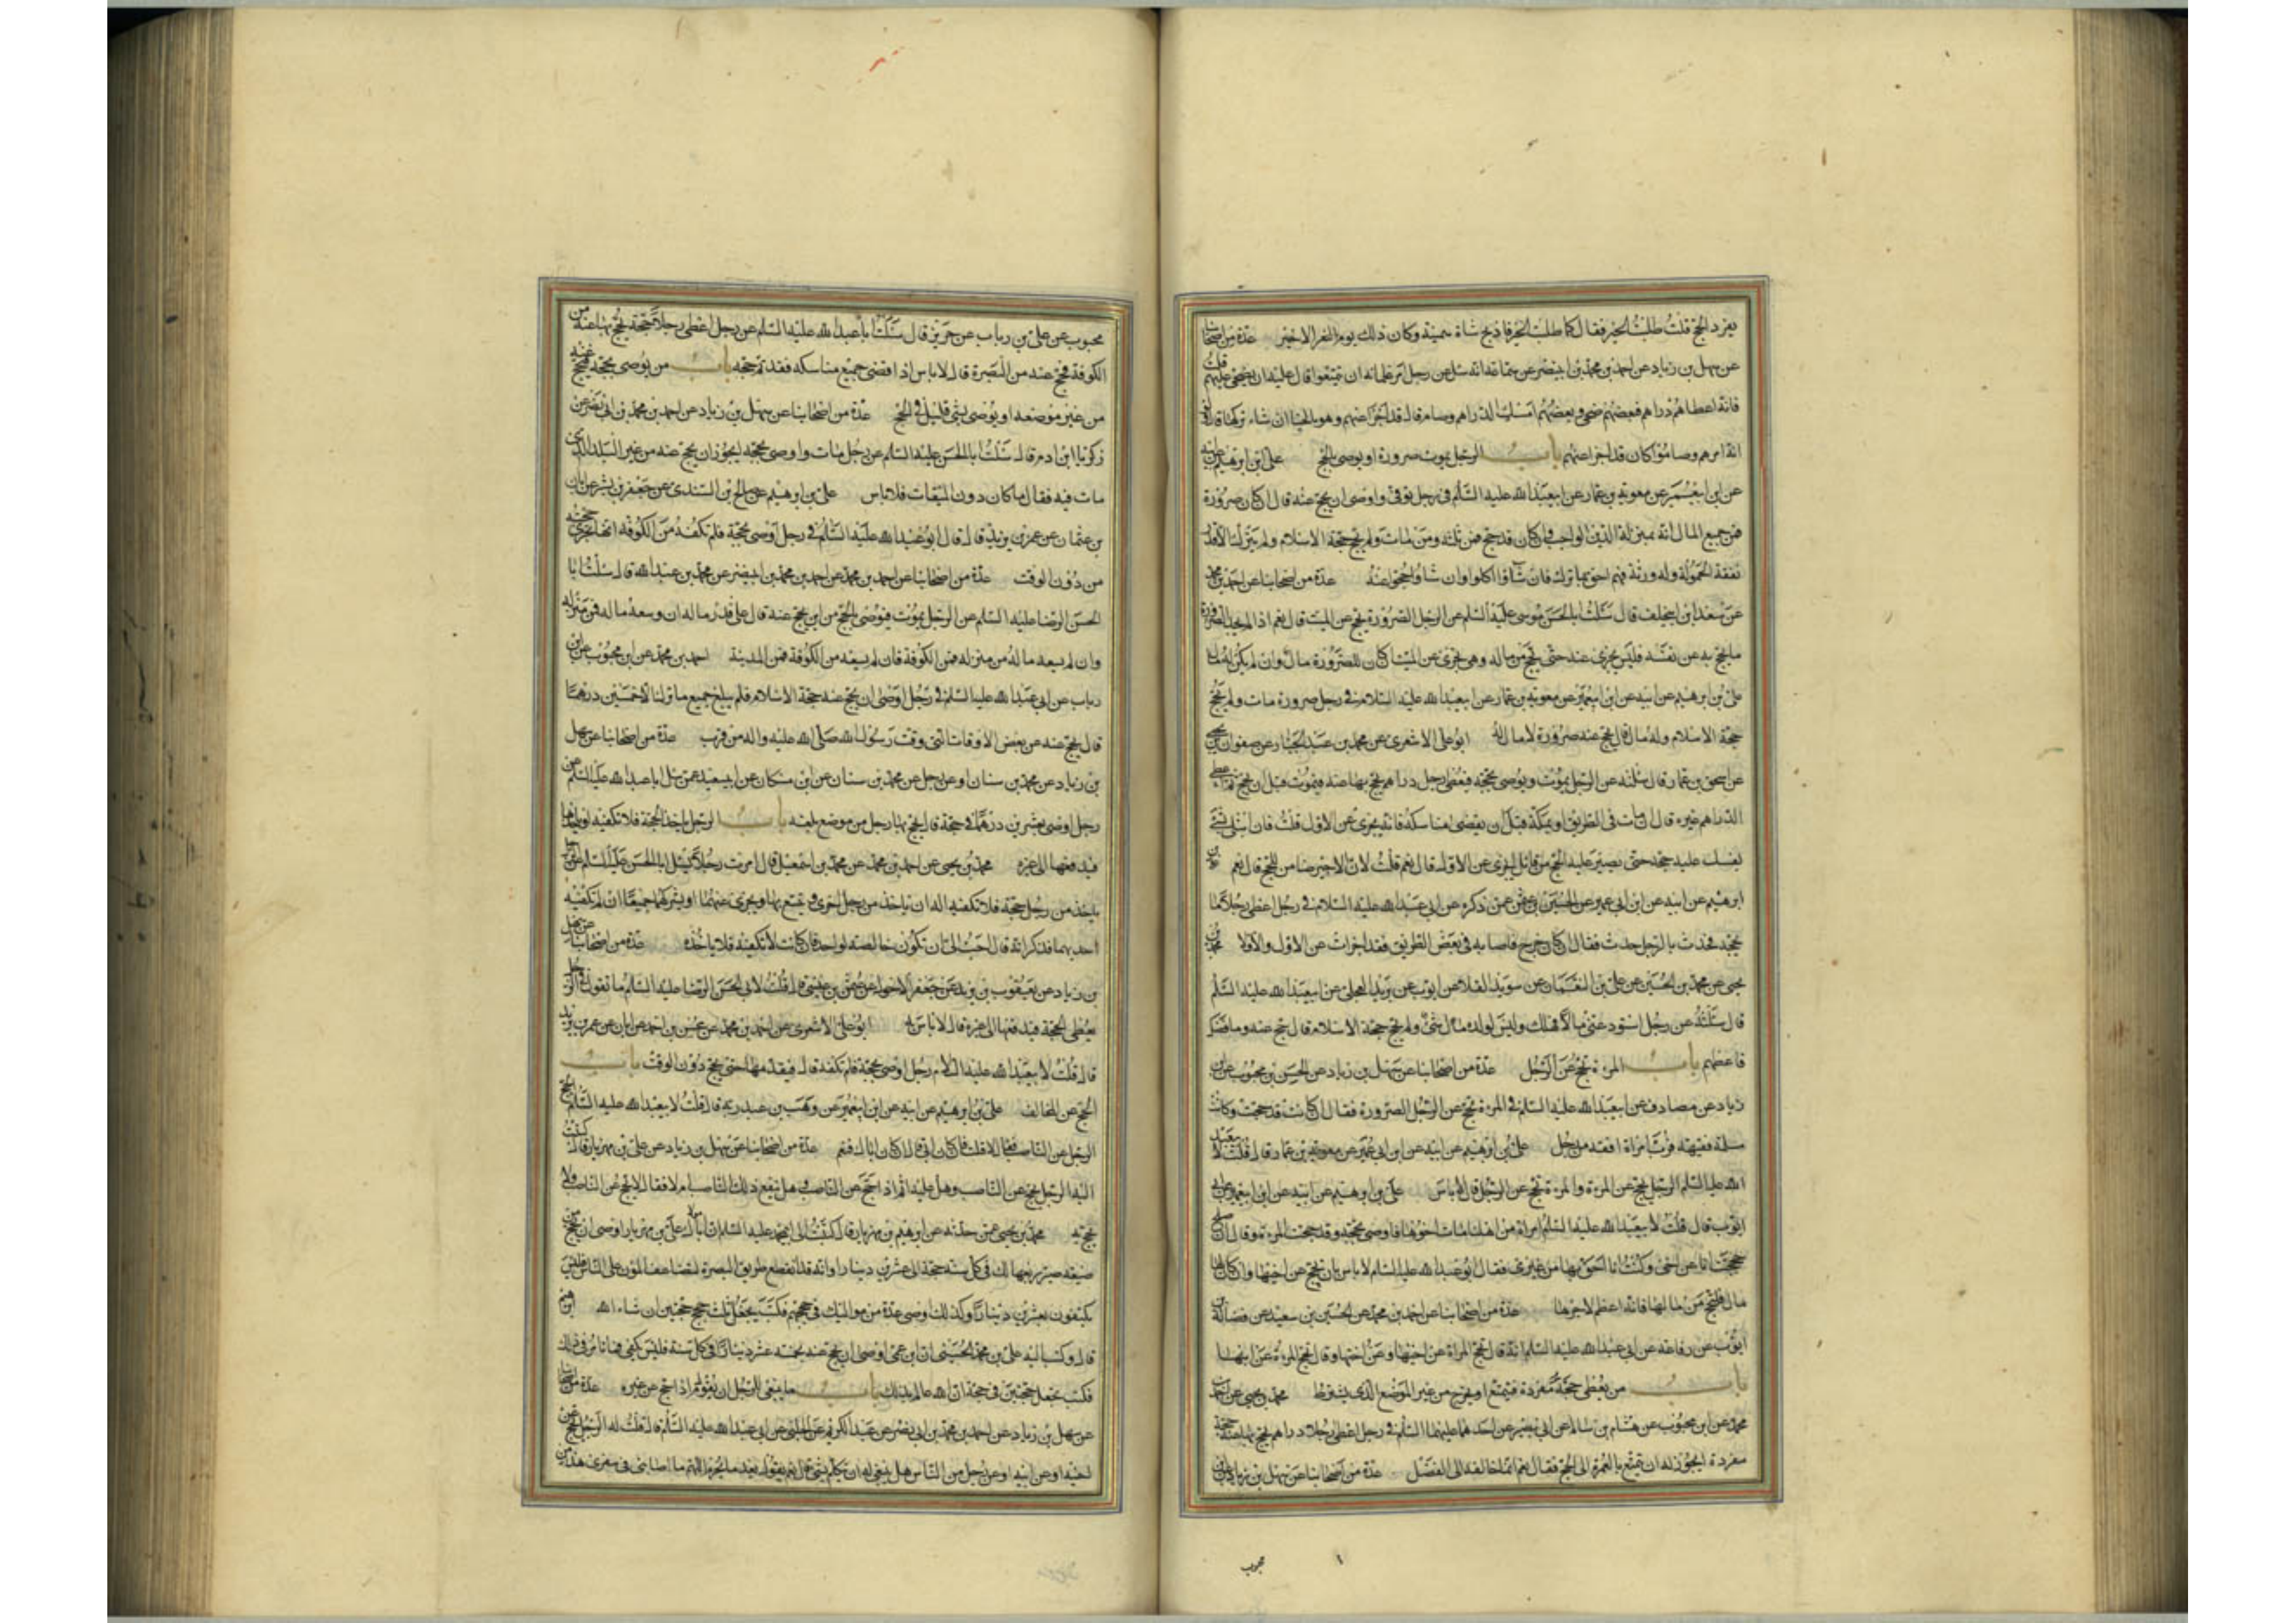 يفرد الحج قلت طلبت الخير فقال كما طلبت الخير فاذبح شاة سمينة وكان ذلك يوم النفر الاخير عدة من اصحابنا
عن سهل بن زياد عن احمد بن محمد بن ابي نصر عن سماعة انه سئل عن رجل امر غلمانه ان يتمتعوا قال عليه ان يضحي عنهم قلت
فانه اعطاهم دراهم فبعضهم ضحى وبعضهم امسك الدراهم وصام قال قد اجزأ عنهم وهو بالخيار ان شاء تركها قال ولو
انه امرهم وصاموا كان قد اجزأ عنهم باب الرجل يموت صرورة او يوصي بالحج علي بن ابرهيم عن ابيه
عن ابن ابي عمير عن معوية بن عمار عن ابي عبد الله عليه السلم في رجل توفي واوصى ان يحج عنه قال ان كان صرورة
فمن جميع المال انه بمنزلة الدين الواجب وان كان قد حج فمن ثلثه ومن مات ولم يحج حجة الاسلام ولم يترك الا قدر
نفقة الحمولة وله ورثة فهم احق بما ترك فان شاؤا اكلوا وان شاؤا حجوا عنه عدة من اصحابنا عن احمد بن محمد
عن سعد بن ابي خلف قال سئلت ابا الحسن موسى عليه السلم عن الرجل الصرورة يحج عن الميت قال نعم اذا لم يجد الصرورة
ما يحج به عن نفسه فليس يجزي عنه حتى يحج من ماله وهي تجزي عن الميت ان كان للصرورة مال وان لم يكن له مال
علي بن ابرهيم عن ابيه عن ابن ابي عمير عن معوية بن عمار عن ابي عبد الله عليه السلام في رجل صرورة مات ولم يحج
حجة الاسلام وله مال قال يحج عنه صرورة لا مال له ابو علي الاشعري عن محمد بن عبد الجبار عن صفوان بن يحيى
عن اسحق بن عمار قال سئلته عن الرجل يموت ويوصي بحجة فيعطى رجل دراهم يحج بها عنه فيموت قبل ان يحج ثم اعطي
الدراهم غيره قال ان مات في الطريق او بمكة قبل ان يقضي مناسكه فانه يجزي عن الاول قلت فان ابتلي بشئ
يفسد عليه حجه حتى يصير عليه الحج من قابل ايجزي عن الاول قال نعم قلت لان الاجير ضامن للحج قال نعم علي بن
ابرهيم عن ابيه عن ابن ابي عمير عن الحسين بن عثمن عمن ذكره عن ابي عبد الله عليه السلام في رجل اعطى رجلا ما
يحجه فحدث بالرجل حدث فقال ان كان خرج فاصابه في بعض الطريق فقد اجزأت عن الاول والا فلا محمد بن
يحيى عن محمد بن الحسين عن علي بن النعمان عن سويد القلا عن ايوب عن بريد العجلي عن ابي عبد الله عليه السلم
قال سئلته عن رجل استودعني مالا فهلك وليس لولده شئ ولم يحج حجة الاسلام قال حج عنه وما فضل
فاعطهم باب المرءة تحج عن الرجل عدة من اصحابنا عن سهل بن زياد عن الحسن بن محبوب عن ابن
رياب عن مصادف عن ابي عبد الله عليه السلم في المرءة تحج عن الرجل الصرورة فقال ان كانت قد حجت وكانت
مسلمة فقيهة فرب امرأة افقه من رجل علي بن ابرهيم عن ابيه عن ابن ابي عمير عن معوية بن عمار قال قلت لابي عبد
الله عليه السلم الرجل يحج عن المرءة والمرءة تحج عن الرجل قال لا باس علي بن ابرهيم عن ابيه عن ابن ابي عمير عن ابي
ايوب قال قلت لابي عبد الله عليه السلم امراة من اهلنا مات اخوها فاوصى بحجة وقد حجت المرءة وقالت ان صلح
حججت انا عن اخي وكنت انا احق بها من غيري فقال ابو عبد الله عليه السلم لا باس بان تحج عن اخيها وان كان لها
مال فلتحج من مالها فانه اعظم لاجرها عدة من اصحابنا عن احمد بن محمد عن الحسين بن سعيد عن فضالة بن
ايوب عن رفاعة عن ابي عبد الله عليه السلم انه قال تحج المراة عن اخيها وعن اختها وقال تحج المرءة عن ابنها
باب من يعطى حجة مفردة فيتمتع او يخرج من غير الموضع الذي يشترط محمد بن يحيى عن احمد بن
محمد عن ابن محبوب عن هشام بن سالم عن ابي بصير عن احدهما عليهما السلم في رجل اعطى رجلا دراهم يحج بها عنه حجة
مفردة ايجوز له ان يتمتع بالعمرة الى الحج فقال نعم انما خالفه الى الفضل عدة من اصحابنا عن سهل بن زياد عن ابن
محبوب
محبوب عن علي بن رياب عن حريز قال سئلت ابا عبد الله عليه السلم عن رجل اعطى رجلا حجة يحج بها عنه من
الكوفة فحج عنه من البصرة قال لا باس اذا قضى جميع مناسكه فقد تم حجه باب من يوصي بحجة فيحج عنه
من غير موضعه او يوصي بشئ قليل في الحج عدة من اصحابنا عن سهل بن زياد عن احمد بن محمد بن ابي نصر عن
زكريا ابن ادم قال سئلت ابا الحسن عليه السلام عن رجل مات واوصى بحجة ايجوز ان يحج عنه من غير البلد الذي
مات فيه فقال ما كان دون الميقات فلا باس علي بن ابرهيم عن صالح بن السندي عن جعفر بن بشير عن ابان
بن عثمان عن عمر بن يزيد قال قال ابو عبد الله عليه السلم في رجل اوصى بحجة فلم تكفه من الكوفة انها تجزي حجته
من دون الوقت عدة من اصحابنا عن احمد بن محمد عن احمد بن محمد بن ابي نصر عن محمد بن عبد الله قال سئلت ابا
الحسن الرضا عليه السلم عن الرجل يموت فيوصي بالحج من اين يحج عنه قال على قدر ماله ان وسعه ماله فمن منزله
وان لم يسعه ماله من منزله فمن الكوفة فان لم يسعه من الكوفة فمن المدينة احمد بن محمد عن ابن محبوب عن ابن
رياب عن ابي عبد الله عليه السلم في رجل اوصى ان يحج عنه حجة الاسلام فلم يبلغ جميع ما ترك الا خمسين درهما
قال يحج عنه من بعض الاوقات التي وقت رسول الله صلى الله عليه واله من قرب عدة من اصحابنا عن سهل
بن زياد عن محمد بن سنان او عن رجل عن محمد بن سنان عن ابن مسكان عن ابي سعيد عمن سئل ابا عبد الله عليه السلم عن
رجل اوصى بعشرين درهما في حجة قال يحج بها رجل من موضع بلغه باب الرجل ياخذ الحجة فلا تكفيه او ياخذها
فيدفعها الى غيره محمد بن يحيى عن احمد بن محمد عن محمد بن اسمعيل قال امرت رجلا يسئل ابا الحسن عليه السلم عن الرجل
ياخذ من رجل حجة فلا تكفيه اله ان ياخذ من رجل اخرى ويتسع بها ويجزى عنهما او يشركهما جميعا ان لم تكفيه
احديهما فذكر انه قال احب الي ان تكون خالصة لواحد فان كانت لا تكفيه فلا ياخذه عدة من اصحابنا عن سهل
بن زياد عن يعقوب بن يزيد عن جعفر الاحول عن عثمن بن عيسى قال قلت لابي الحسن الرضا عليه السلم ما تقول في الرجل
يعطى الحجة فيدفعها الى غيره قال لا باس به ابو علي الاشعري عن احمد بن محمد عن محسن بن احمد عن ابان عن عمر بن يزيد
قال قلت لابي عبد الله عليه السلام رجل اوصى بحجة فلم تكفه قال فيقدمها حتى يحج دون الوقت باب
الحج عن المخالف علي بن ابرهيم عن ابيه عن ابن ابي عمير عن وهب بن عبد ربه قال قلت لابي عبد الله عليه السلم ايحج
الرجل عن الناصب فقال لا قلت فان كان ابي قال ان كان اباك فنعم عدة من اصحابنا عن سهل بن زياد عن علي بن مهزيار قال كتبت
اليه الرجل يحج عن الناصب وهل عليه اثم اذا حج عن الناصب وهل ينفع ذلك الناصب ام لا فقال لا يحج عن الناصب ولا
يحج به محمد بن يحيى عمن حدثه عن ابرهيم بن مهزيار قال كتبت الى ابي محمد عليه السلم ان مولاك علي بن مهزيار اوصى ان يحج عنه من
ضيعة صير ربعها لك في كل سنة حجة الى عشرين دينارا وانه قد انقطع طريق البصرة فتضاعف المؤن على الناس فليس
يكتفون بعشرين دينارا وكذلك اوصى عدة من مواليك في حججهم فكتب يجعل ثلث حجج حجتين ان شاء الله ابرهيم
قال وكتب اليه علي بن محمد الحسيني ان ابن عمي اوصى ان يحج عنه بخمسة عشر دينارا في كل سنة فليس يكفي فما تامر في ذلك
فكتب يجعل حجتين في حجة ان الله عالم بذلك باب ما ينبغي للرجل ان يقول اذا حج عن غيره عدة من اصحابنا
عن سهل بن زياد عن احمد بن محمد بن ابي نصر عن عبد الكريم عن الحلبي عن ابي عبد الله عليه السلم قال قلت له الرجل يحج عن
اخيه او عن ابيه او عن رجل من الناس هل ينبغي له ان يتكلم بشئ قال نعم يقول بعد ما يحرم اللهم ما اصابني في سفري هذا من